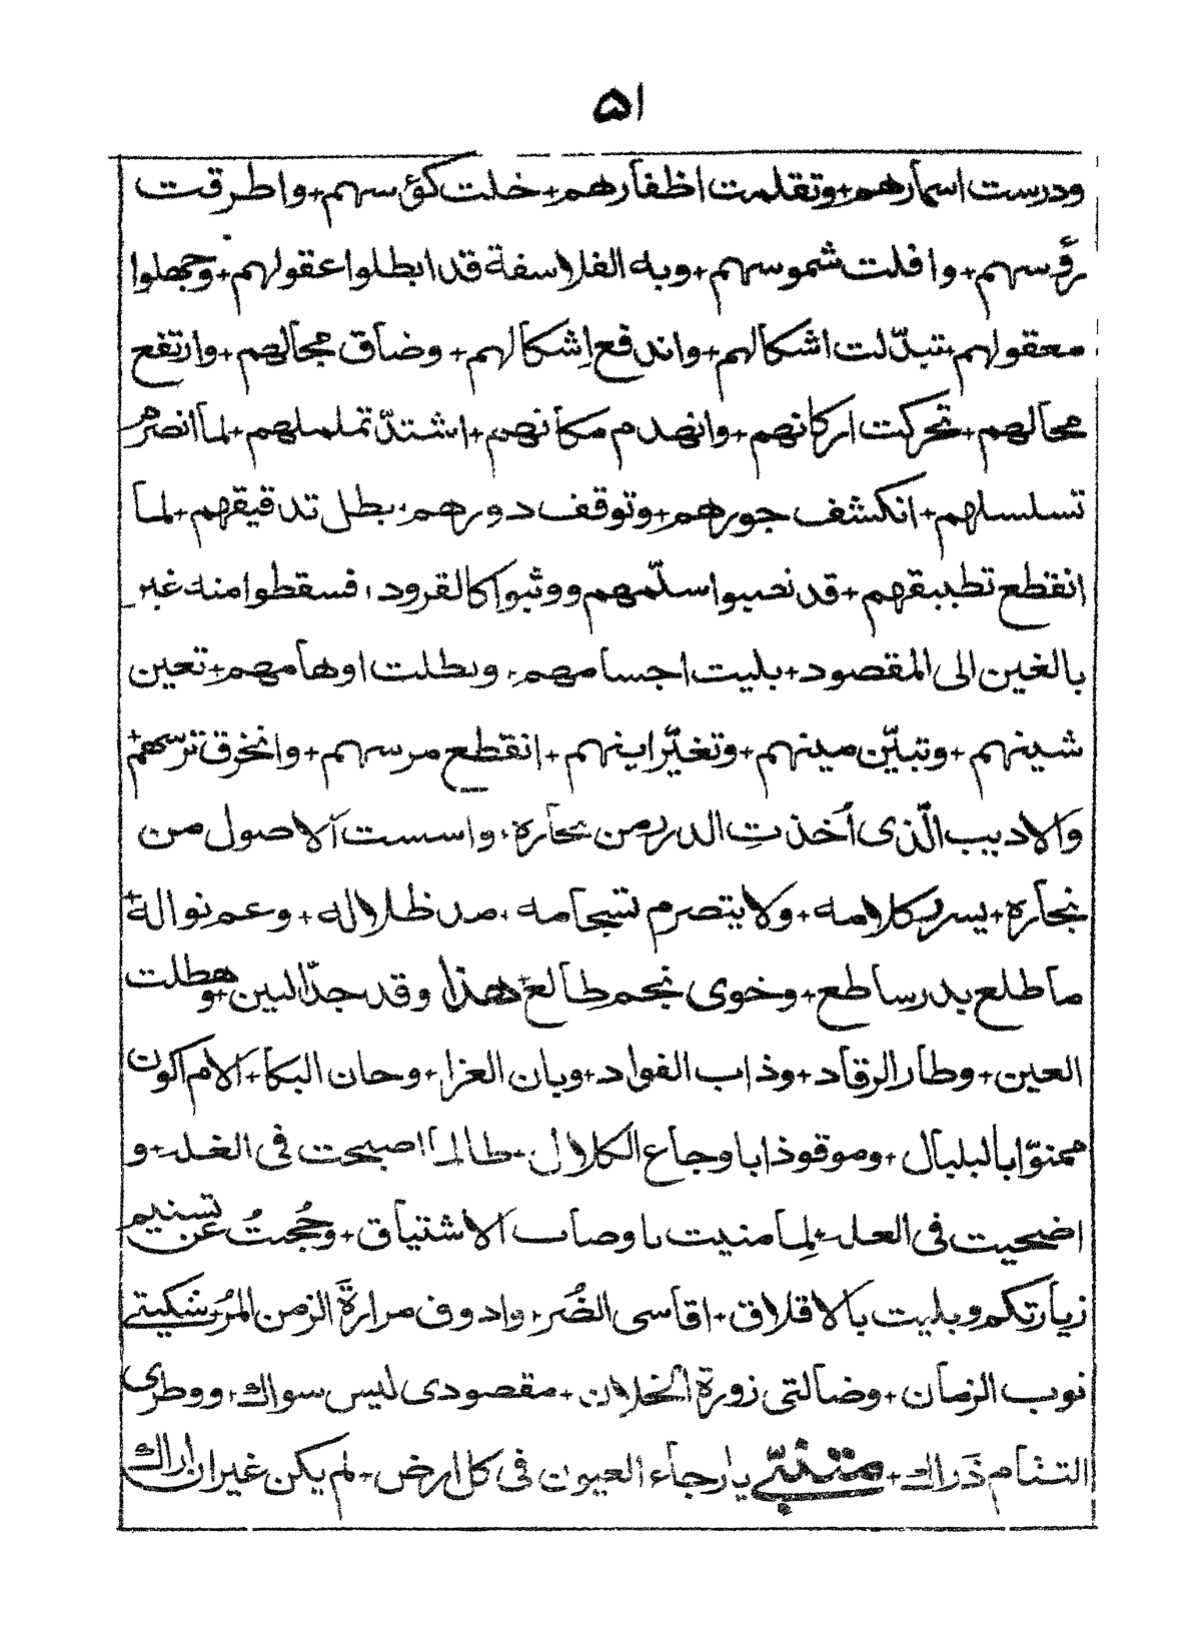 ۵۱
ودرست اسمارهم+وتقلمت اظفارهم+خلت كؤسهم+واطرقت
رؤسهم+وافلت شموسهم+وبه الفلاسفة قد ابطلوا عقولهم+وجهلوا
معقولهم+تبدّلت اشكالهم+واندفع اِشكالهم+وضاق مجالهم+وارتفع
محالهم+تحركت اركانهم+وانهدم مكانهم+اشتدّ تململهم+لما انصرم
تسلسلهم+انكشف جورهم+وتوقف دورهم+بطل تدقيقهم+لما
انقطع تطبيقهم+قد نصبوا سلّمهم ووثبوا كالقرود+فسقطوا منه غير
بالغين الى المقصود+بليت اجسامهم+وبطلت اوهامهم+تعين
شينهم+وتبيّن مينهم+وتغيّر اينهم+انقطع مرسهم+وانخرق ترسهم+
والاديب الّذى اُخذتِ الدرر من بحاره+واسست الاصول من
نجاره+يسر بكلامه+ولا يتصرم تسجامه+مد ظلاله+وعم نواله+
ما طلع بدر ساطع+وخوى نجم طالع+هذا وقد جدّ البين+وهطلت
العين+وطار الرقاد+وذاب الفواد+وبان العزا+وحان البكا+الام اكون
ممنوّا بالبلبال+وموقوذا باوجاع الكلال+طالما اصبحت فى الغلـ+و
اضحيت فى العلـ+لِما منيت باوصاب الاشتياق+وحُجبتُ عن تسنيم
زيارتكم وبليت بالاقلاق+اقاسى الضُر+وادوف مرارةَ الزمن المُر+شكيتى
نوب الزمان+وضالتى زورة الخلان+مقصودى ليس سواك+ووطرى
التشام ذَراك+متنبّى يا رجاء العيون فى كل ارض+لم يكن غير ان اراك